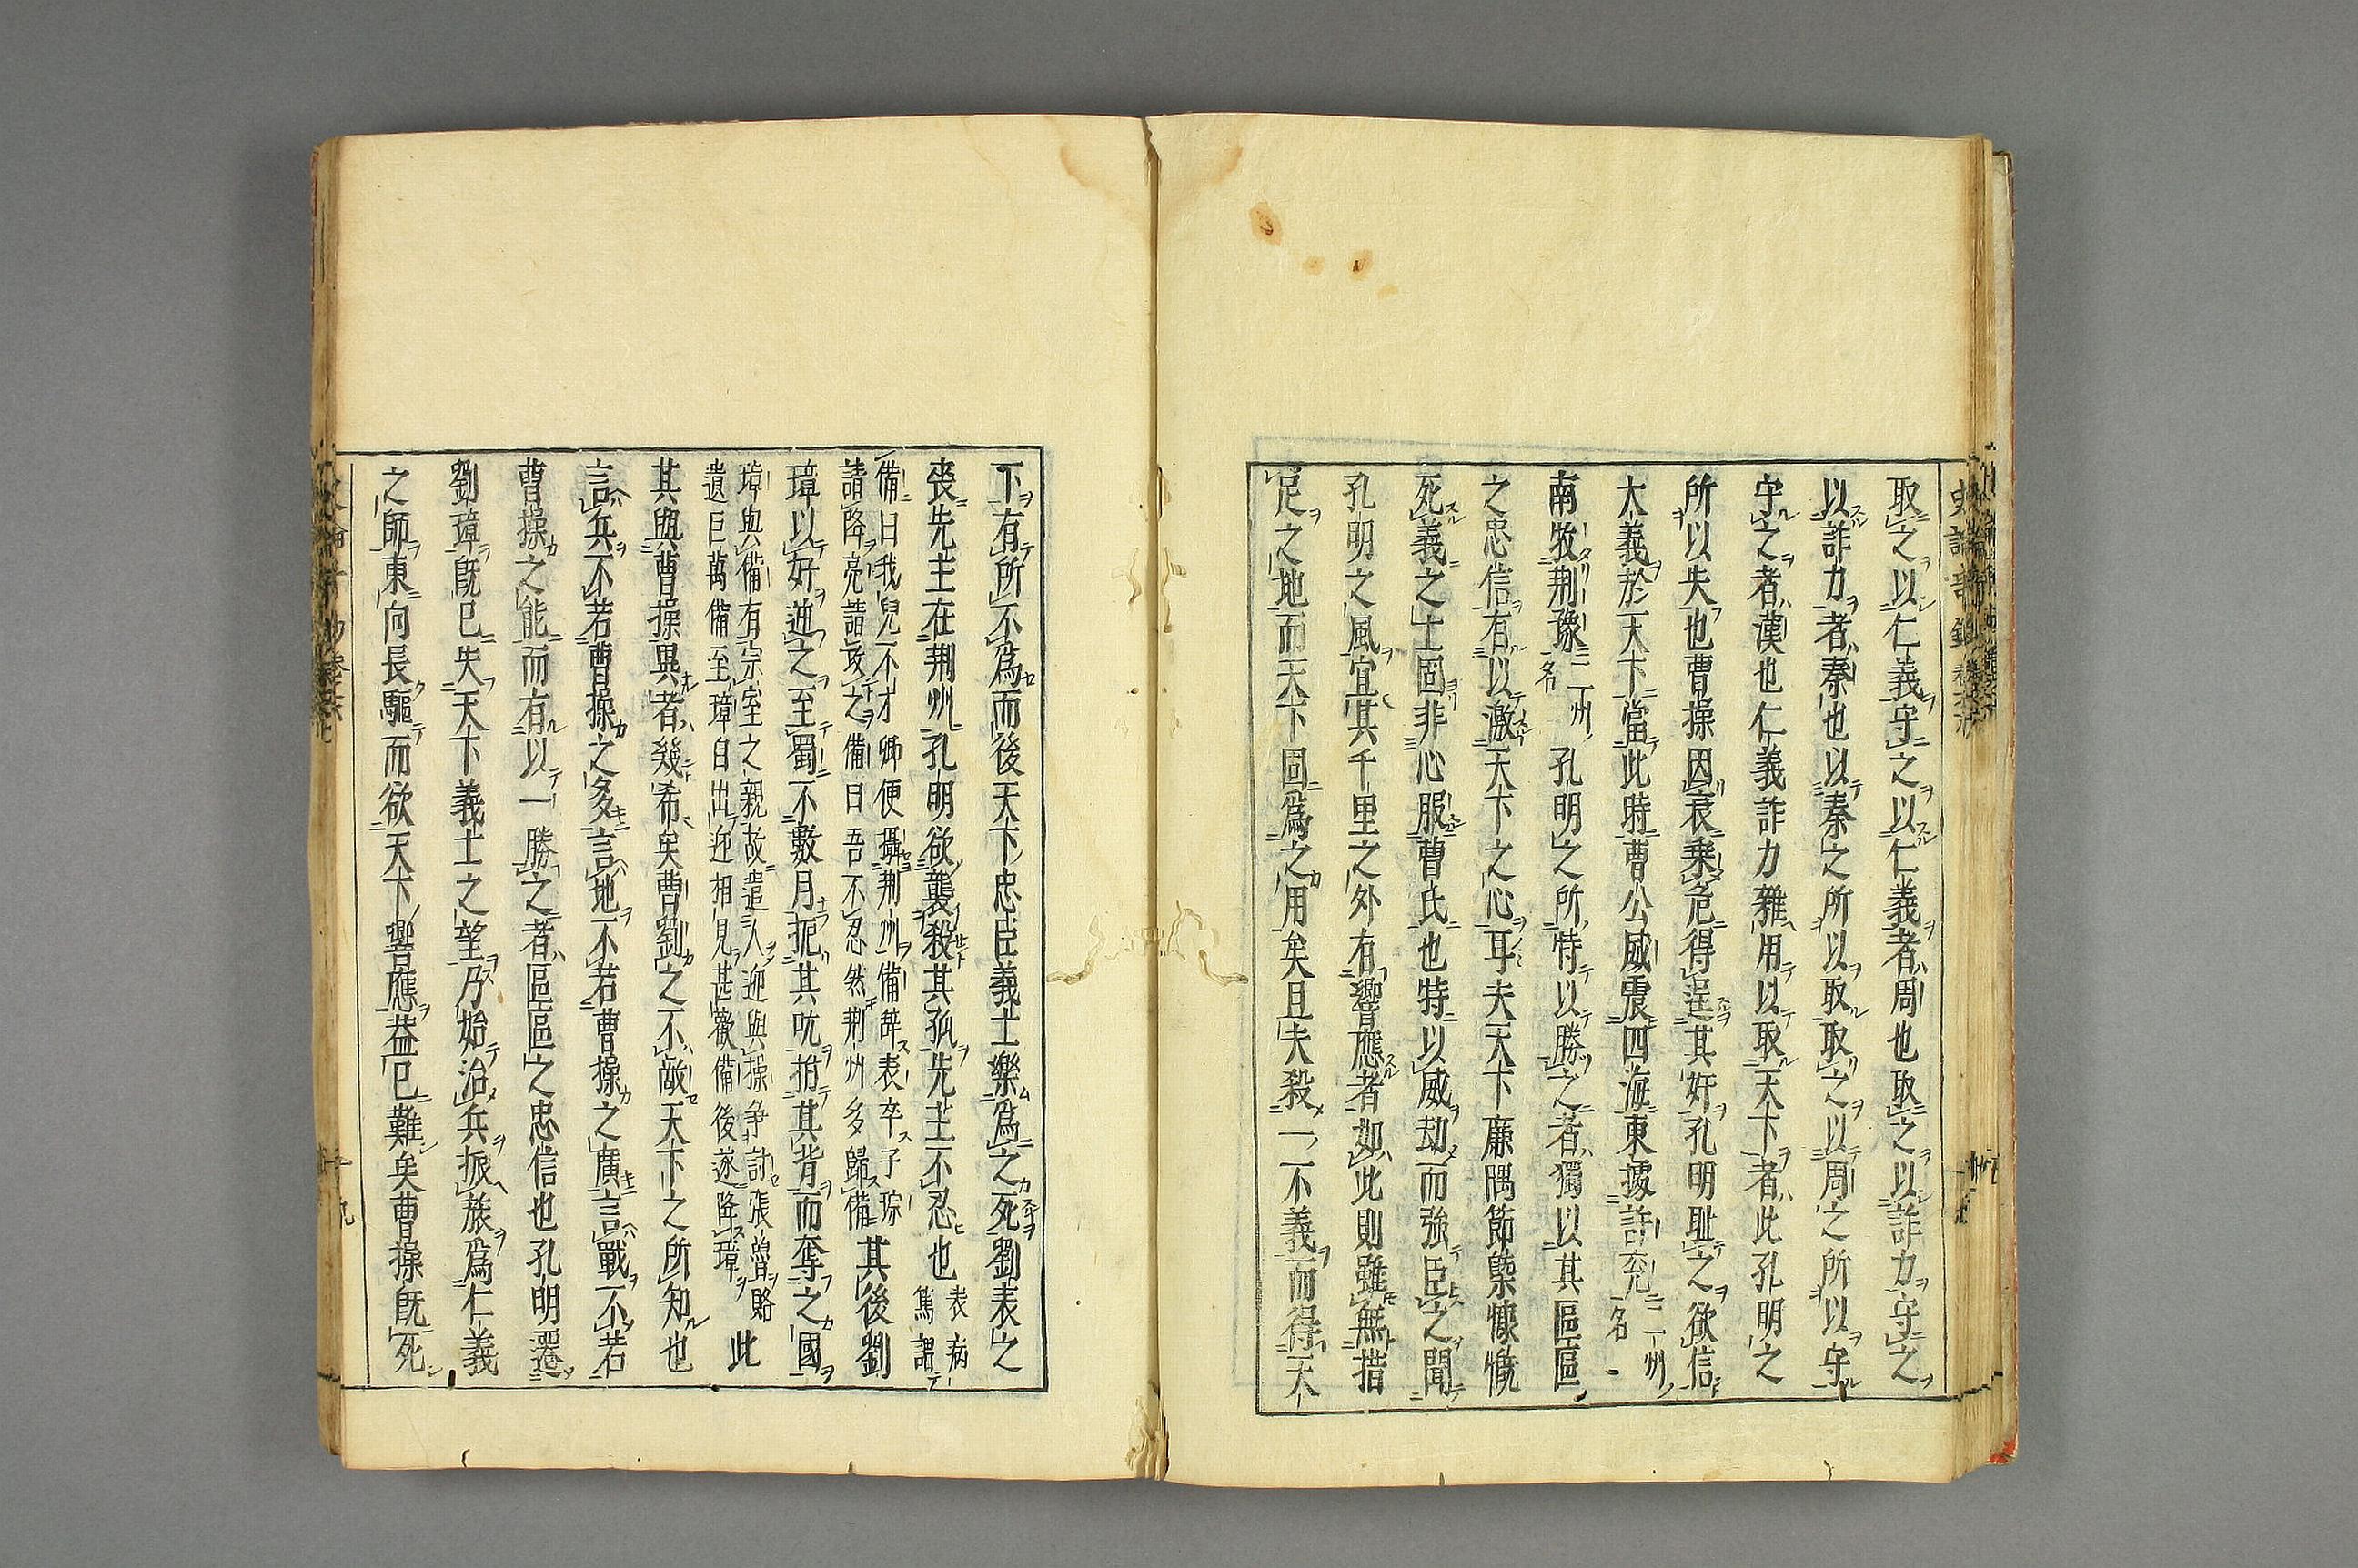 取之以仁義守之以仁義者周也取之以詐力守之
以詐力者秦也以秦之所以取取之以周之所以守
守之者漢也仁義詐力雜用以取天下者此孔明之
所以失也曹操因衰乗危得逞其奸孔明耻之欲信
大義於天下當此時曹公威震四海東據許兖二州名
南牧荆豫二州名孔明之所恃以勝之者獨以其區區
之忠信有以激天下之心耳夫天下廉隅節槩慷慨
死義之士固非心服曹氏也特以威劫而強臣之聞
孔明之風宜其千里之外有響應者如此則雖無措
足之地而天下固爲之用矣且夫殺一不義而得天
下有所不爲而後天下忠臣義士樂爲之死劉表之
喪先主在荆州孔明欲襲殺其孤先主不忍也表病篤謂
備曰我兒不才卿便攝荆州備辭表卒子琮
請降亮請攻之備曰吾不忍然荆州多歸備其後劉
璋以好逆之至蜀不數月扼其吭拊其背而奪之國
璋與備有宗室之親故遣人迎與操争討張魯賂
遺巨萬備至璋自出迎相見甚歡備後遂降璋此
其與曹操異者幾希矣曹劉之不敵天下之所知也
言兵不若曹操之多言地不若曹操之廣言戰不若
曹操之能而有以一勝之者區區之忠信也孔明遷
劉璋既已失天下義士之望乃始治兵振旅爲仁義
之師東向長驅而欲天下響應葢已難矣曹操既死